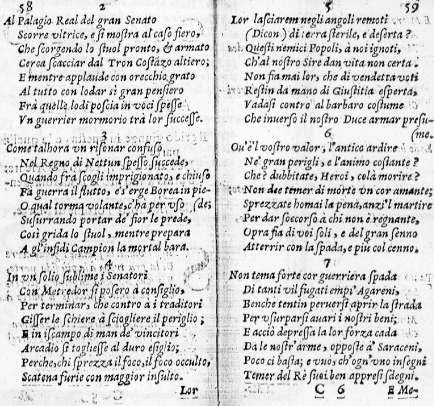 58 2
Al Palagio Real del gran Senato
Scorre vltrice, e si mostra al caso fiero,
Che scorgendo lo stuol pronto, & armato
Cerca scacciar dal Tron Costãzo altiero;
E mentre applaude con orecchio grato
Al tutto con lodar sì gran pensiero
Frà quelle lodi poscia in voci spesse
Vn guerrier mormorio trà lor successe.
3
Come talhora vn risonar confuso,
Nel Regno di Nettun spesso succede,
Quando frà scogli imprigionato, e chiuso
Fà guerra il flutto, e s'erge Borea in pie-
O qual torma volante, c'hà per vso (de;
Susurrando portar de' fior le prede,
Così grida lo stuol, mentre prepara
A gl'infidi Campion la mortal bara.
4
In vn solio sublime i Senatori
Con Metredor si posero à consiglio,
Per terminar, che contro à i traditori
Gisser le schiere à sciogliere il periglio;
E in iscampo di man de' vincitori
Arcadio si togliesse al duro esiglio;
Perche, chi sprezza il foco, il foco occulto,
Scatena furie con maggior insulto.
Lor
5 59
Lor lasciarem negli angoli remoti
(Dicon) di terra sterile, e deserta?
Questi nemici Popoli, à noi ignoti,
Ch'al nostro Sire dan vita non certa.
Non fia mai lor, che di vendetta voti
Restin da mano di Giustitia esperta,
Vadasi contro al barbaro costume
Che inuerso il nostro Duce armar presu-
6 (me
Ou'è'l vostro valor, l'antico ardire
Ne' gran perigli, e l'animo costante?
Che? dubbitate, Heroi, colà morire?
Non dee temer di morte vn cor amante;
Sprezzate homai la pena, anzi'l martire
Per dar soccorso à chi non è regnante,
Opra fia di voi soli, e del gran senno
Atterrir con la spada, e più col cenno.
7
Non tema forte cor guerriera spada
Di tanti vil fugati empi' Agareni,
Benche tentin peruersi aprir la strada
Per vsurparsi auari i nostri beni;
E acciò depressa la lor forza cada
Da le nostr'arme, opposte à' Saraceni,
Poco ci basta; e vuò, ch'ogn'vno insegni
Temer del Rè suoi ben appresi sdegni.
C 6 E Me-